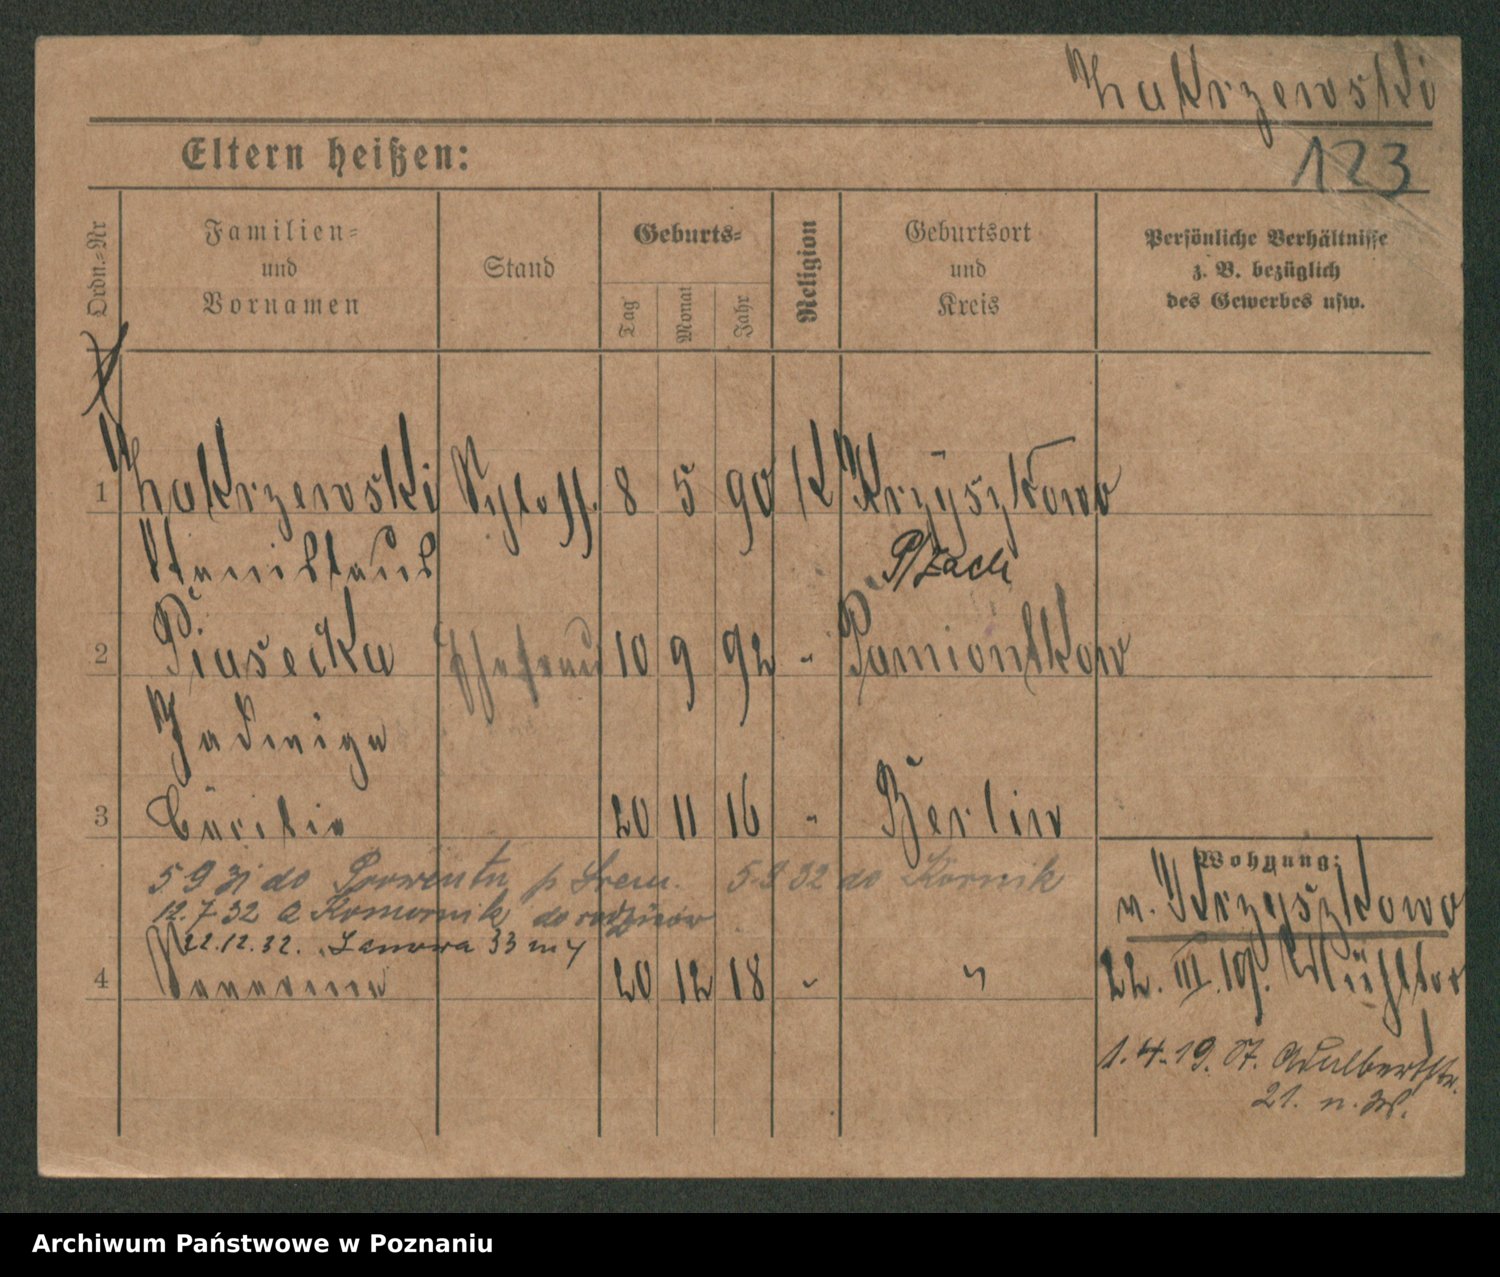 Zakrzewski
Eltern heißen:
123
Ordn.=Nr
Familien=
und
Vornamen
Stand
Geburts=
Tag
Monat
Jahr
Religion
Geburtsort
und
Kreis
Persönliche Verhältnisse
z. B. bezüglich
des Gewerbes usw.
1 Zakrzewski 8 5 90 K Krzyszkowo
Stanislaus
2 Piasecka Ehefrau 10 9 92 " Pamiontkowo
Jadwiga
3 Cäcilie 20 11 16 " Berlin
5 9 31 do p Śrem. 5.9 32 do Kórnik
12.7 32 a Komornik do rodziców
22.12.32. 33 m 4
4 20 12 18 " "
Wohnung:
n. Krzyszkowo
22. III. 19. Mühltor
1. 4. 19. St. Adalbertstr.
21. n. W.
Archiwum Państwowe w Poznaniu